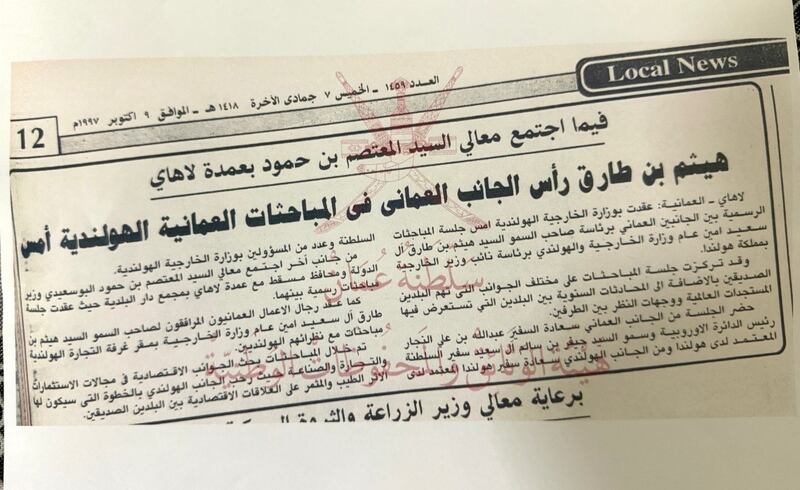 Local News
العدد ١٤٥٩ - الخميس ٧ جمادى الآخرة ١٤١٨ هـ - الموافق ٩ اكتوبر ١٩٩٧م
12
فيما اجتمع معالي السيد المعتصم بن حمود بعمدة لاهاي
هيثم بن طارق رأس الجانب العمانى فى المباحثات العمانية الهولندية أمس
لاهاي - العمانية: عقدت بوزارة الخارجية الهولندية امس جلسة المباحثات
الرسمية بين الجانبين العماني برئاسة صاحب السمو السيد هيثم بن طارق آل
سعيد امين عام وزارة الخارجية والهولندي برئاسة نائب وزير الخارجية
بمملكة هولندا.
وقد تركزت جلسة المباحثات على مختلف الجوانب التى تهم البلدين
الصديقين بالاضافة الى المحادثات السنوية بين البلدين التي تستعرض فيها
المستجدات العالمية ووجهات النظر بين الطرفين.
حضر الجلسة من الجانب العماني سعادة السفير عبدالله بن علي النجار
رئيس الدائرة الاوروبية وسمو السيد جيفر بن سالم آل سعيد سفير السلطنة
المعتمد لدى هولندا ومن الجانب الهولندي سعادة سفير هولندا المعتمد لدى
السلطنة وعدد من المسؤولين بوزارة الخارجية الهولندية.
من جانب آخر اجتمع معالي السيد المعتصم بن حمود البوسعيدي وزير
الدولة ومحافظ مسقط مع عمدة لاهاي بمجمع دار البلدية حيث عقدت جلسة
مباحثات رسمية بينهما.
كما عقد رجال الاعمال العمانيون المرافقون لصاحب السمو السيد هيثم بن
طارق آل سعيد امين عام وزارة الخارجية بمقر غرفة التجارة الهولندية
مباحثات مع نظرائهم الهولنديين.
تم خلال المباحثات بحث الجوانب الاقتصادية في مجالات الاستثمارات
والتجارة والصناعة حيث رحب الجانب الهولندي بالخطوة التى سيكون لها
الاثر الطيب والمثمر على العلاقات الاقتصادية بين البلدين الصديقين.
برعاية معالي وزير الزراعة والثروة
سَلطنَةُ عُمان
هيئة الوثائق والمحفوظات الوطنية